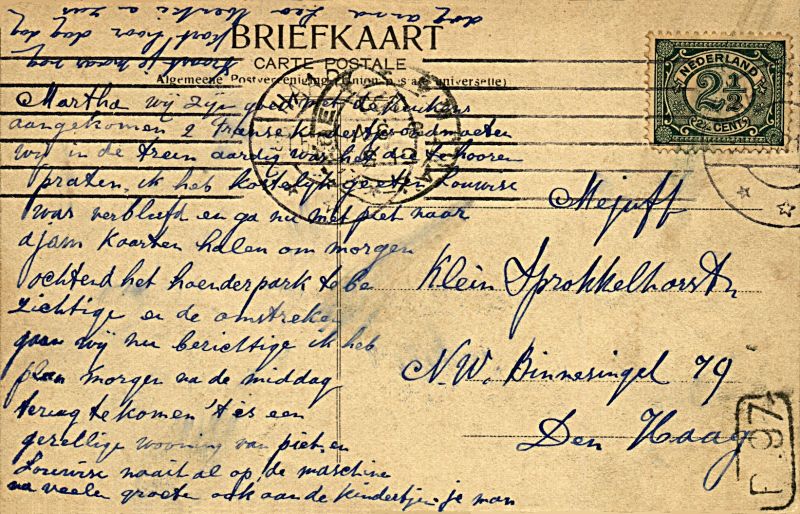 BRIEFKAART
CARTE POSTALE
Algemeene Postvereeniging (Union postale universelle)
NEDERLAND
2½
2½ CENT
Martha wij zijn goed met de keukens
aangekomen 2 Franse kindertjes ontmoeten
wij in de trein aardig was het die te hooren
praten. ik heb kostelijk geeten Louwise
was verbliefd en ga nu met piet naar
djam kaarten halen om morgen
ochtend het hoenderpark te be
zichtige en de omstreken
gaan wij nu berichtige ik heb
plan morgen na de middag
terug te komen 't is een
gezellige wooning van piet en
Louwise naait al op de maschine
na veelen groeten ook aan de kindertjes je man
Mejuff
Klein Sprokkelhorst
N.W. Binnesingel 79
Den Haag
F 97